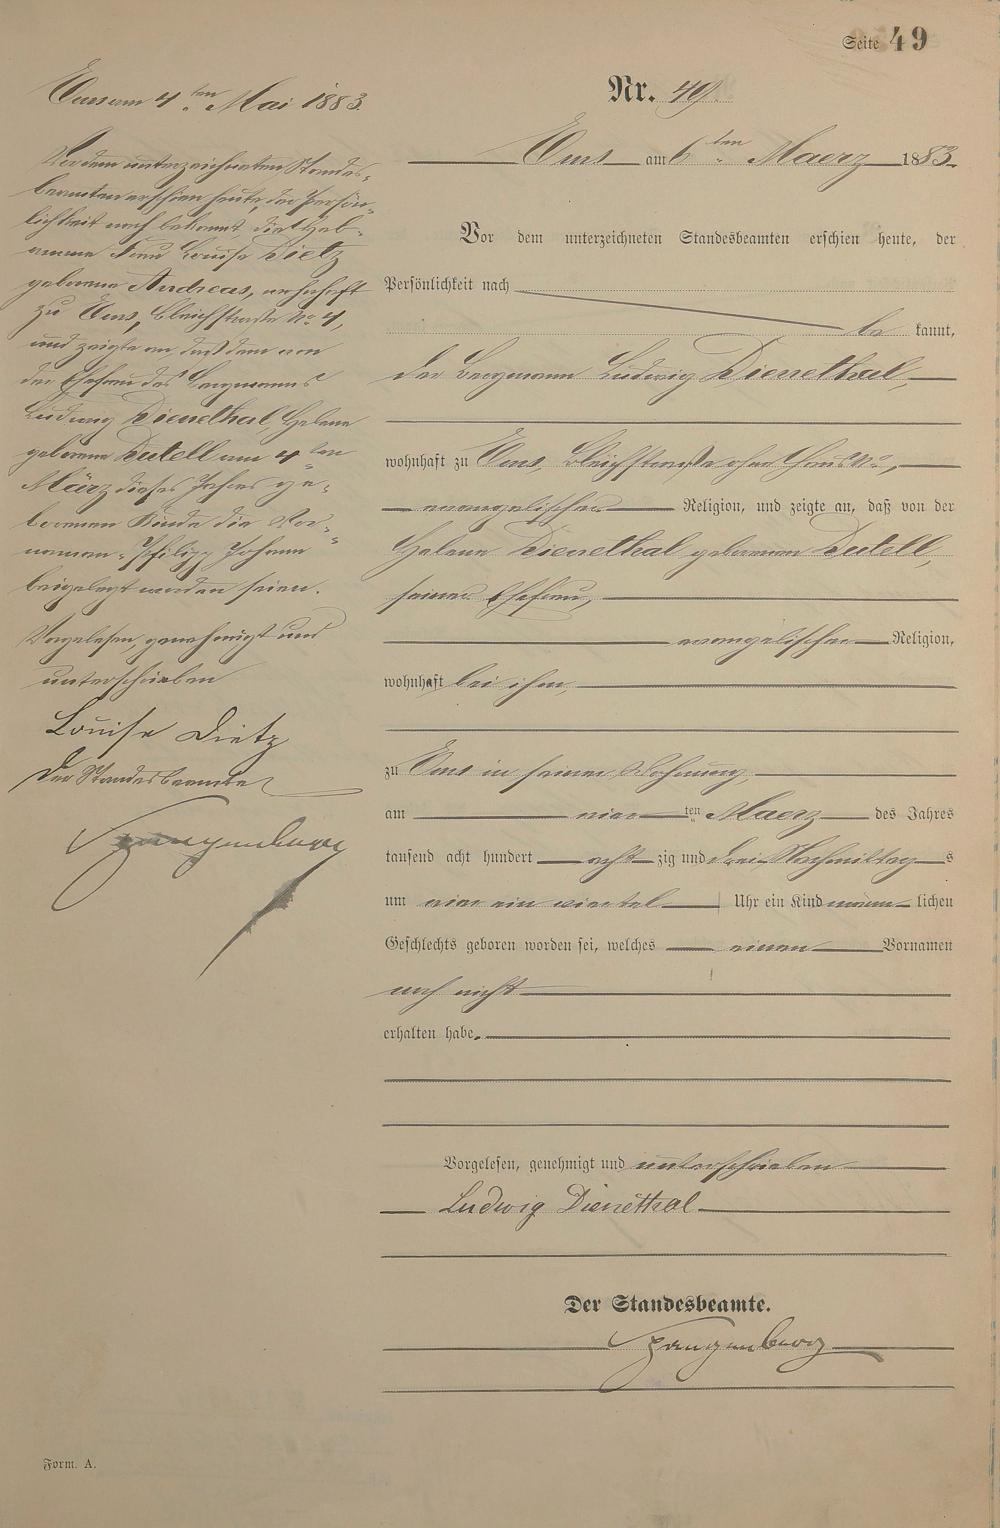 Seite 49
Nr. 49.
Ems am 6ten Maerz 1883.
Vor dem unterzeichneten Standesbeamten erschien heute, der
Persönlichkeit nach
be kannt,
der Bergmann Ludwig Dienethal,
wohnhaft zu Ems, Bleichstraße ohne Haus No,
evangelischer Religion, und zeigte an, daß von der
Helene Dienethal geborenen Dutell,
seiner Ehefrau,
evangelischer Religion,
wohnhaft bei ihm,
zu Ems in seiner Wohnung,
am vierten Maerz des Jahres
tausend acht hundert acht zig und drei Nachmittags
um vier ein viertel Uhr ein Kind männlichen
Geschlechts geboren worden sei, welches einen Vornamen
noch nicht
erhalten habe.
Vorgelesen, genehmigt und unterschrieben
Ludwig Dienethal
Der Standesbeamte.
Spangenberg
Ems am 4ten Mai 1883.
Vor dem unterzeichneten Standes-
beamten erschien heute, der Persön-
lichkeit nach bekannt, die Heb-
amme Frau Louise Dietz
geborene Andreas, wohnhaft
zu Ems, Bleichstraße No 4,
und zeigte an, daß dem von
der Ehefrau des Bergmanns
Ludwig Dienethal, Helene
geborene Dutell am 4ten
März dieses Jahres ge-
borenen Kinde die Vor-
namen: Philipp Johann
beigelegt worden seien.
Vorgelesen, genehmigt und
unterschrieben
Louise Dietz
Der Standesbeamte
Spangenberg
Form. A.